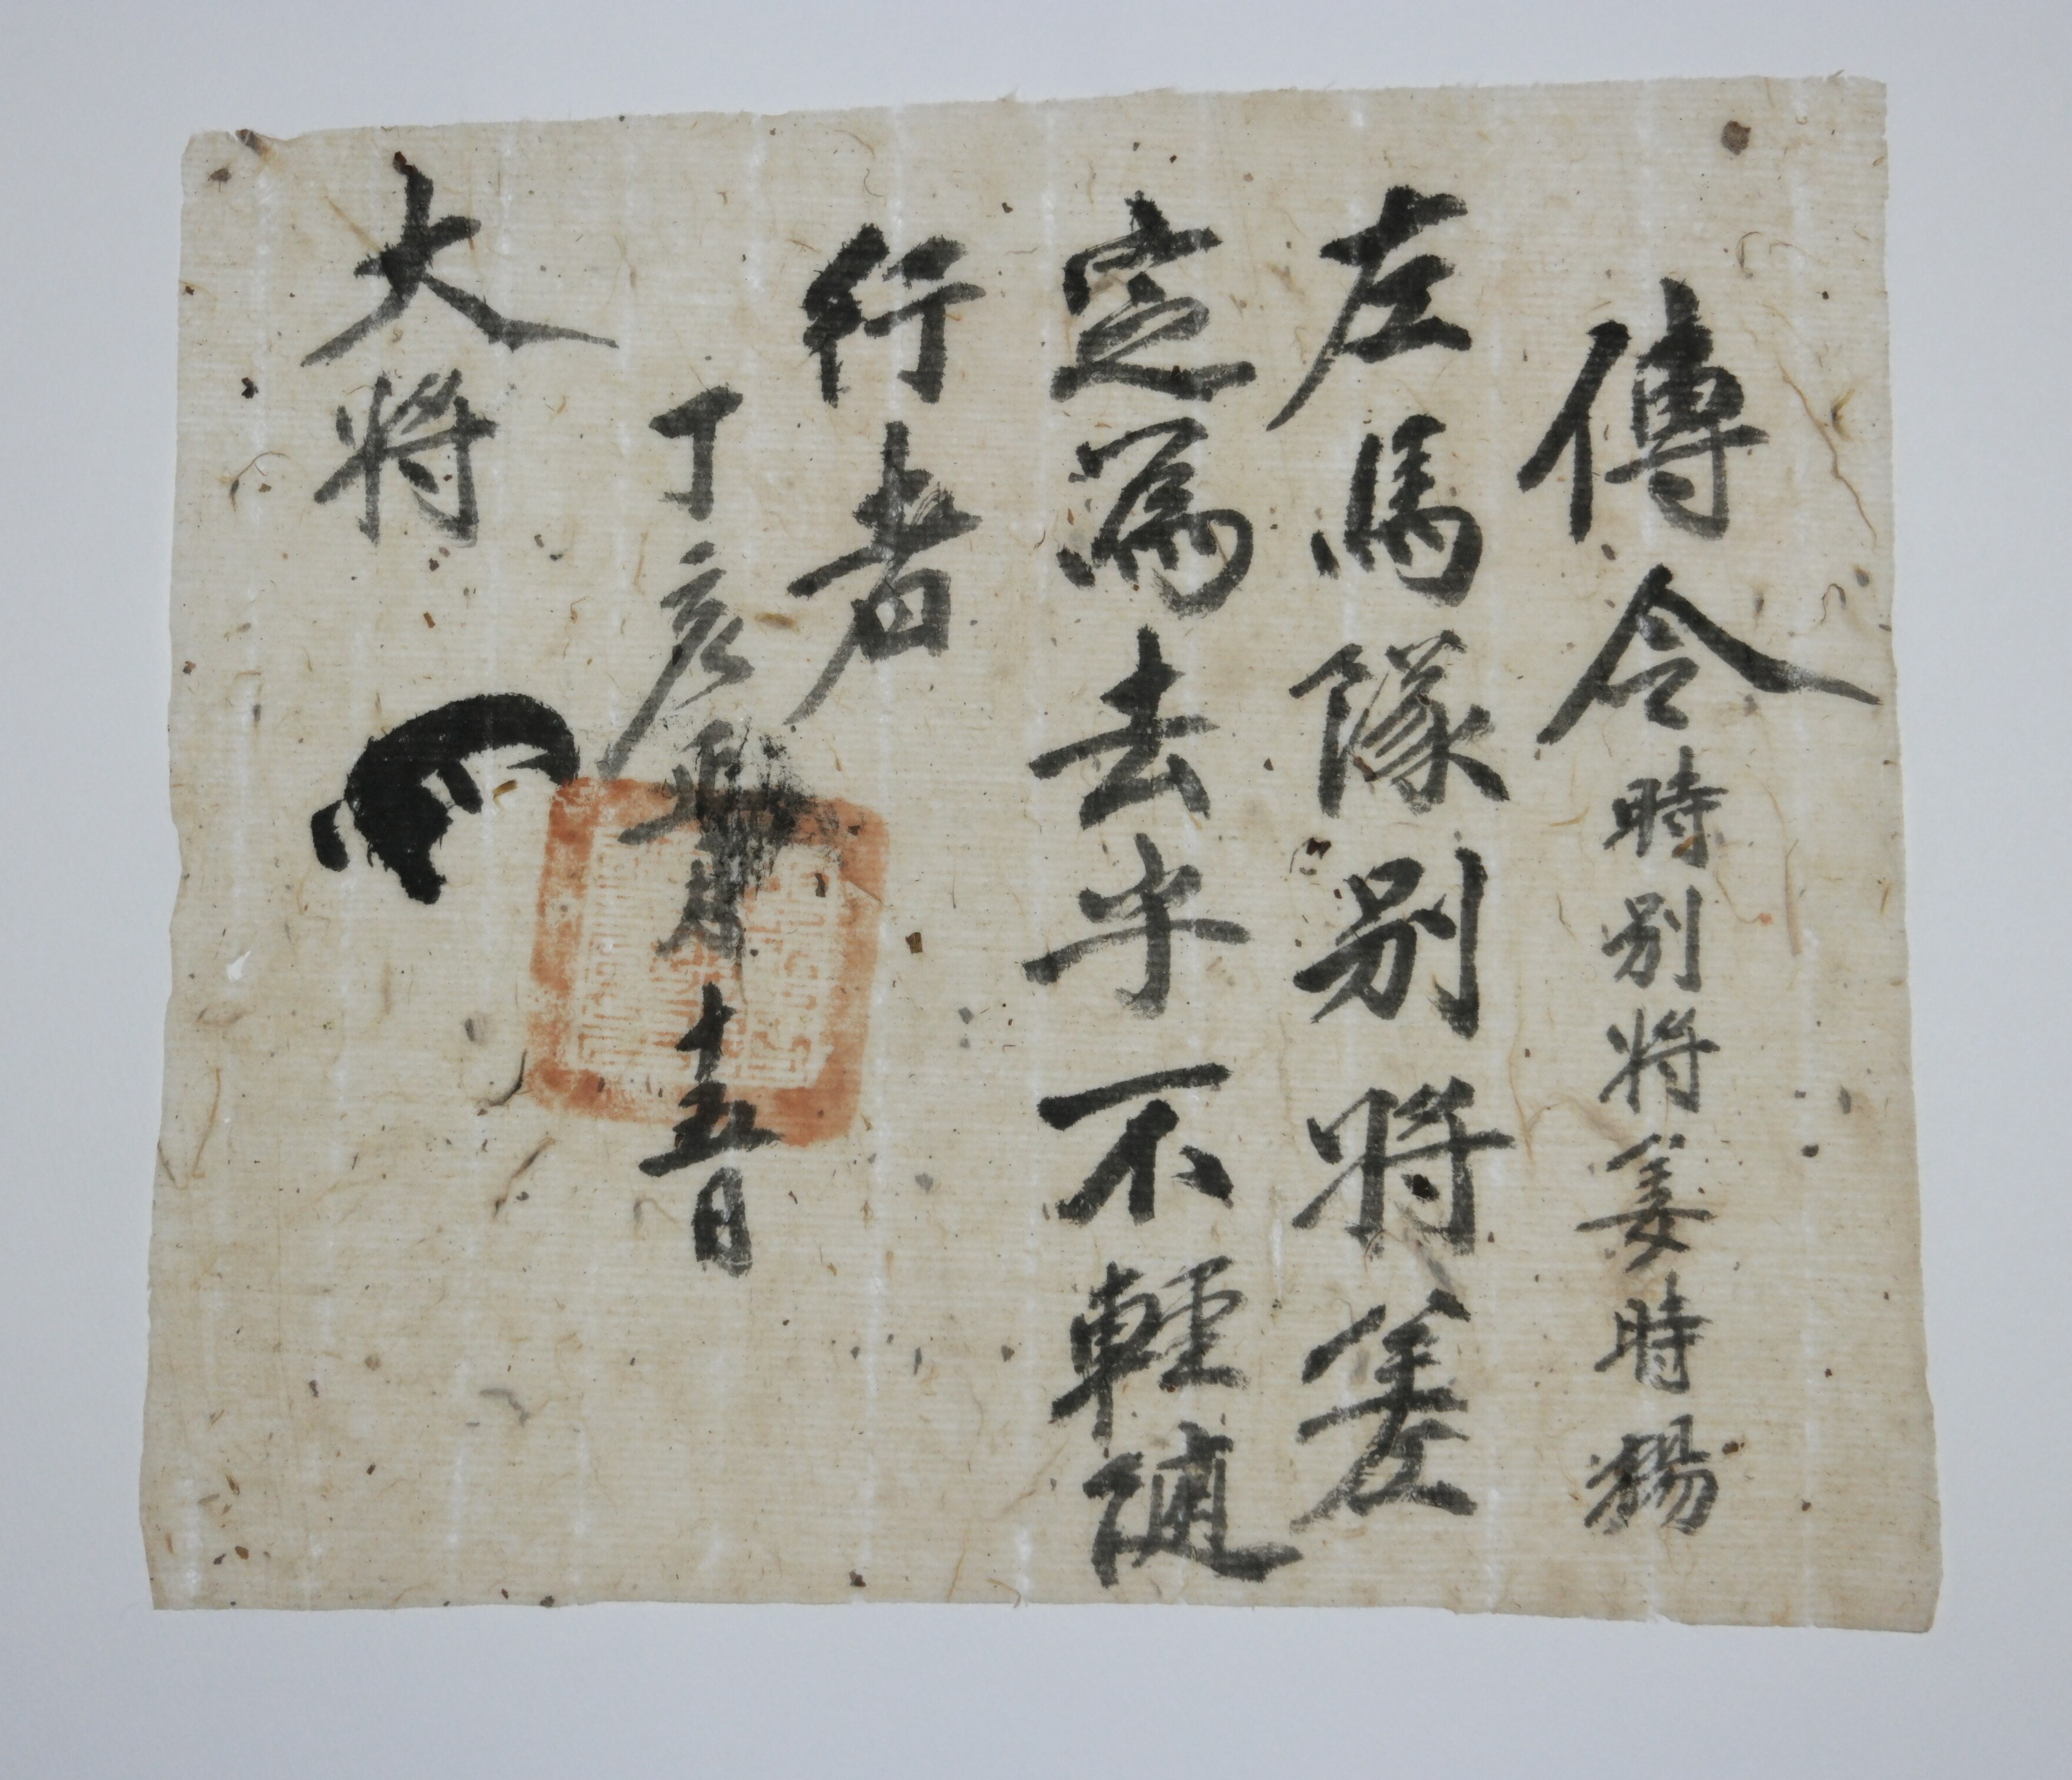 傳令 時別將姜時
左馬隊別將差
定爲去乎不輕隨
行者
丁亥正月十五日
大將